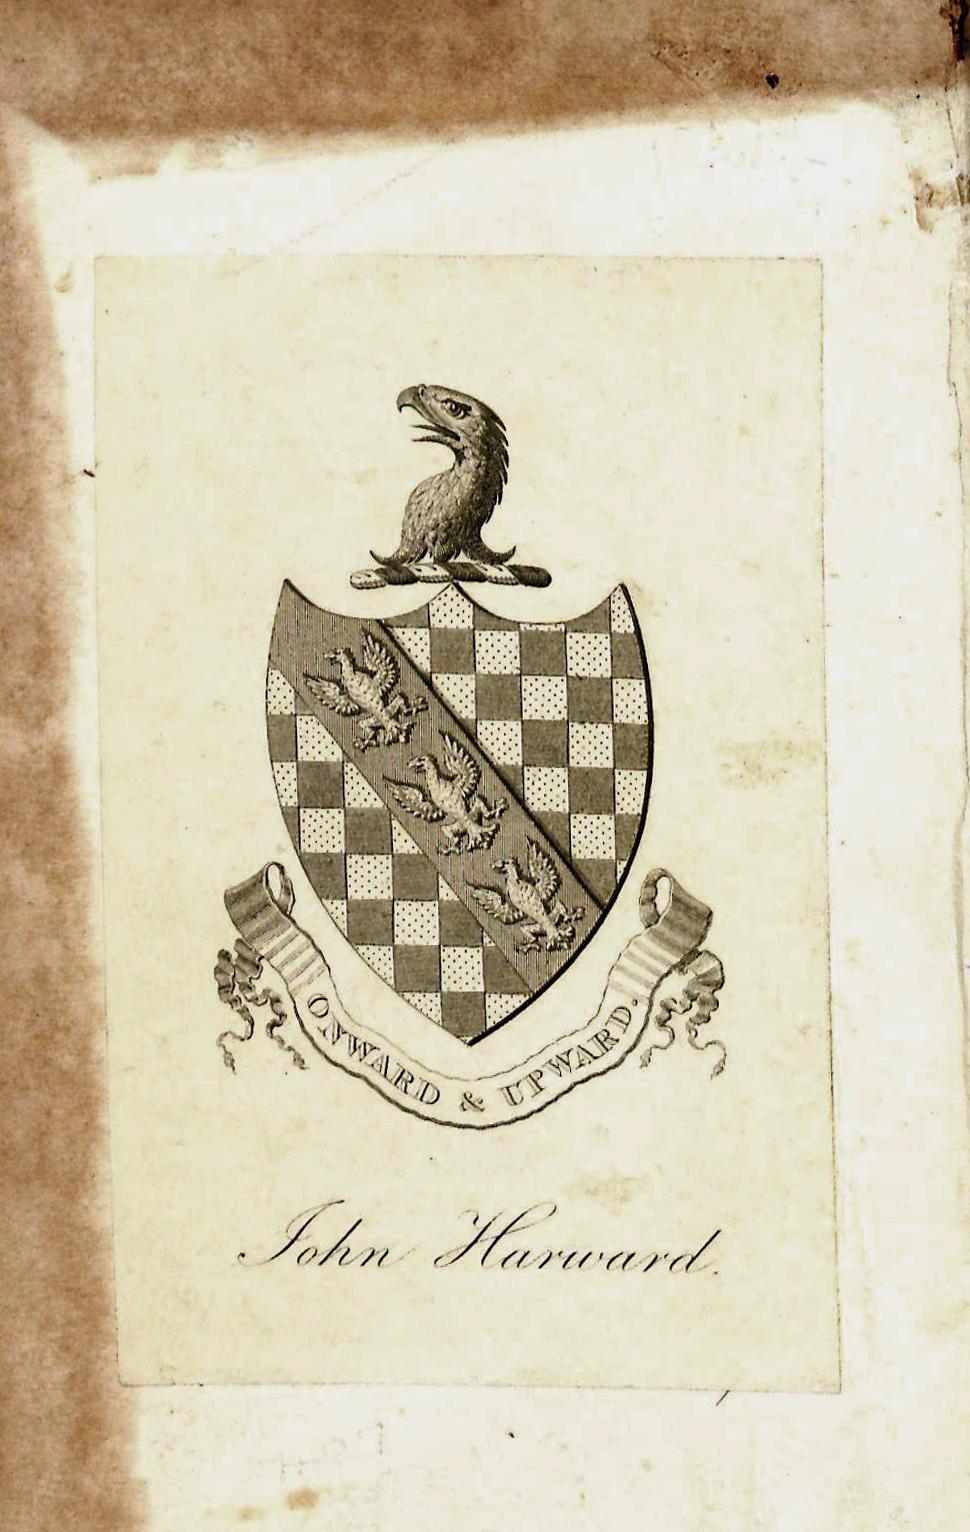 ONWARD & UPWARD.
John Harward.